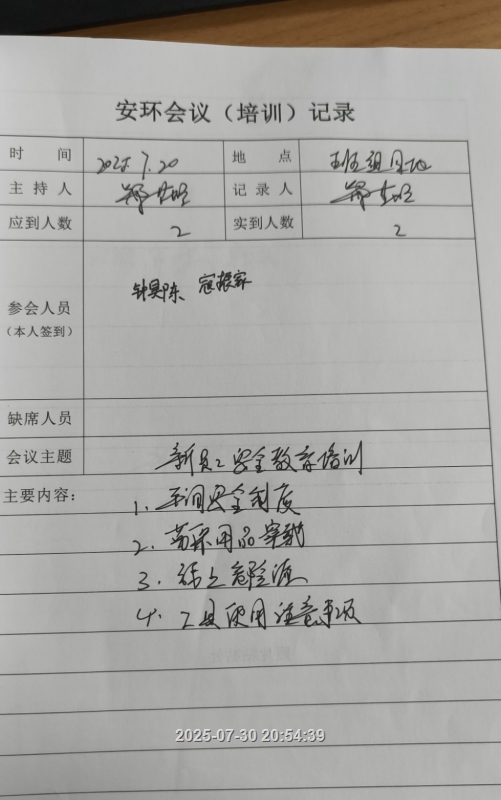 安环会议（培训）记录
时 间 2025.7.20 地 点 班组
主 持 人 记 录 人
应到人数 2 实到人数 2
参会人员
（本人签到）
缺席人员
会议主题 新员工安全教育培训
主要内容：
1. 车间安全制度
2. 劳保用品穿戴
3. 危险源
4. 工具使用注意事项
2025-07-30 20:54:39